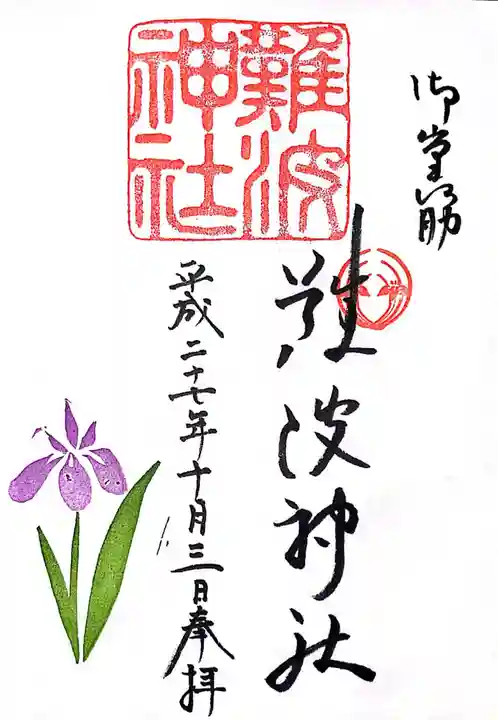 御堂筋
難波神社
難波神社
平成二十七年十月三日奉拝